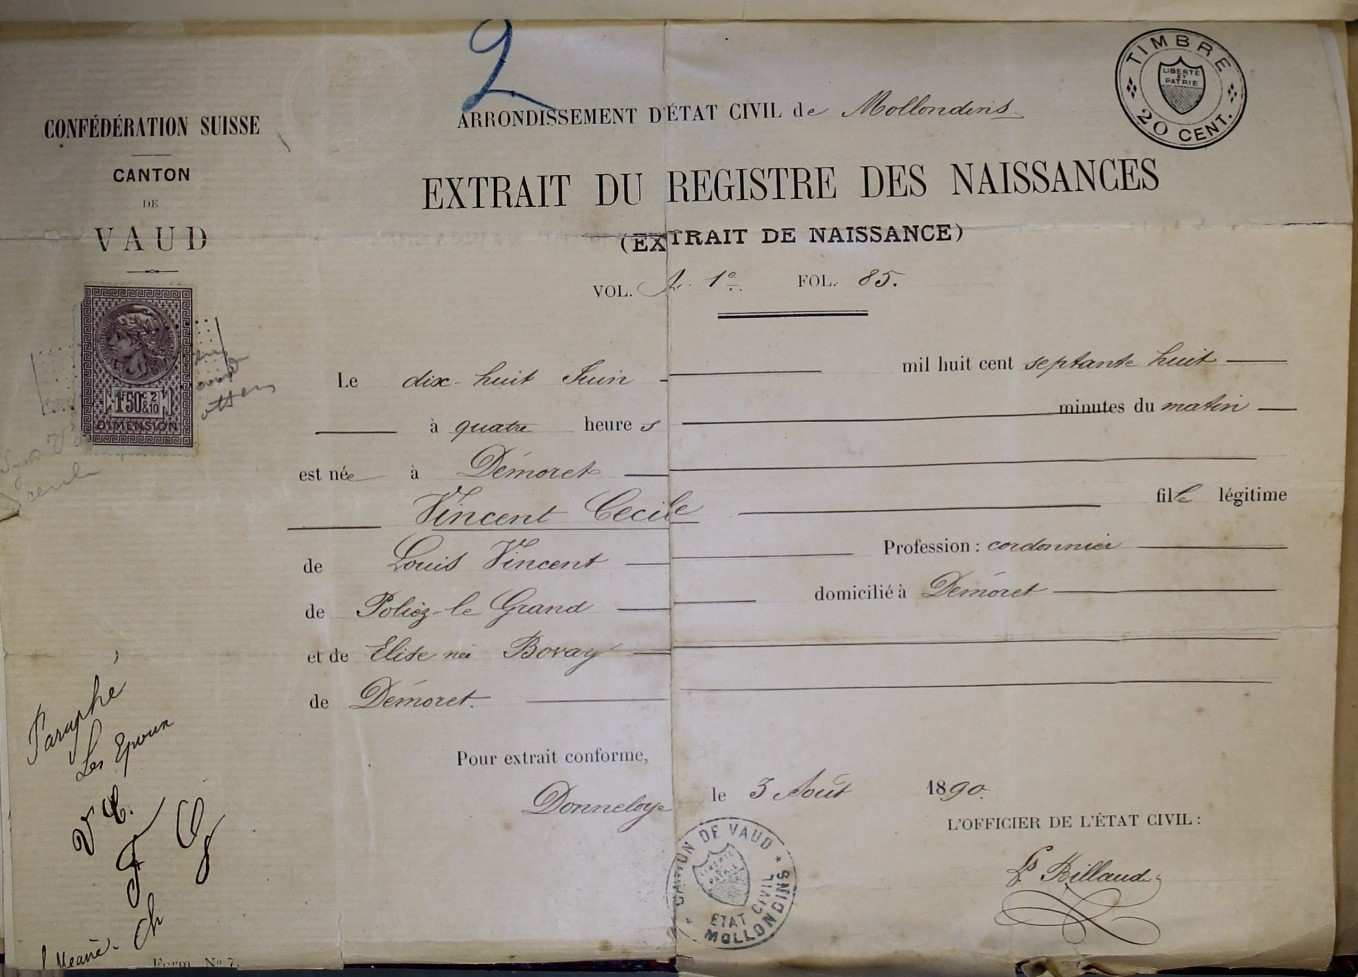 2
CONFÉDÉRATION SUISSE
CANTON
DE
VAUD
ARRONDISSEMENT D'ÉTAT CIVIL de Mollondins
TIMBRE
LIBERTE
ET
PATRIE
20 CENT.
EXTRAIT DU REGISTRE DES NAISSANCES
(EXTRAIT DE NAISSANCE)
VOL. A. 1º FOL. 85.
1F50C 2/10
DIMENSION
Le dix-huit Juin mil huit cent septante huit
à quatre heures minutes du matin
est née à Démoret
Vincent Cecile fille légitime
de Louis Vincent Profession : cordonnier
de Poliez-le Grand domicilié à Démoret
et de Elise née Bovay
de Démoret.
Pour extrait conforme,
Donneloye le 3 Août 1890.
L'OFFICIER DE L'ÉTAT CIVIL :
Ls Billaud
CANTON DE VAUD
LIBERTE
PATRIE
ETAT CIVIL
MOLLONDINS
Paraphé
Les Epoux
V C.
F G
ch
Form. No 7.